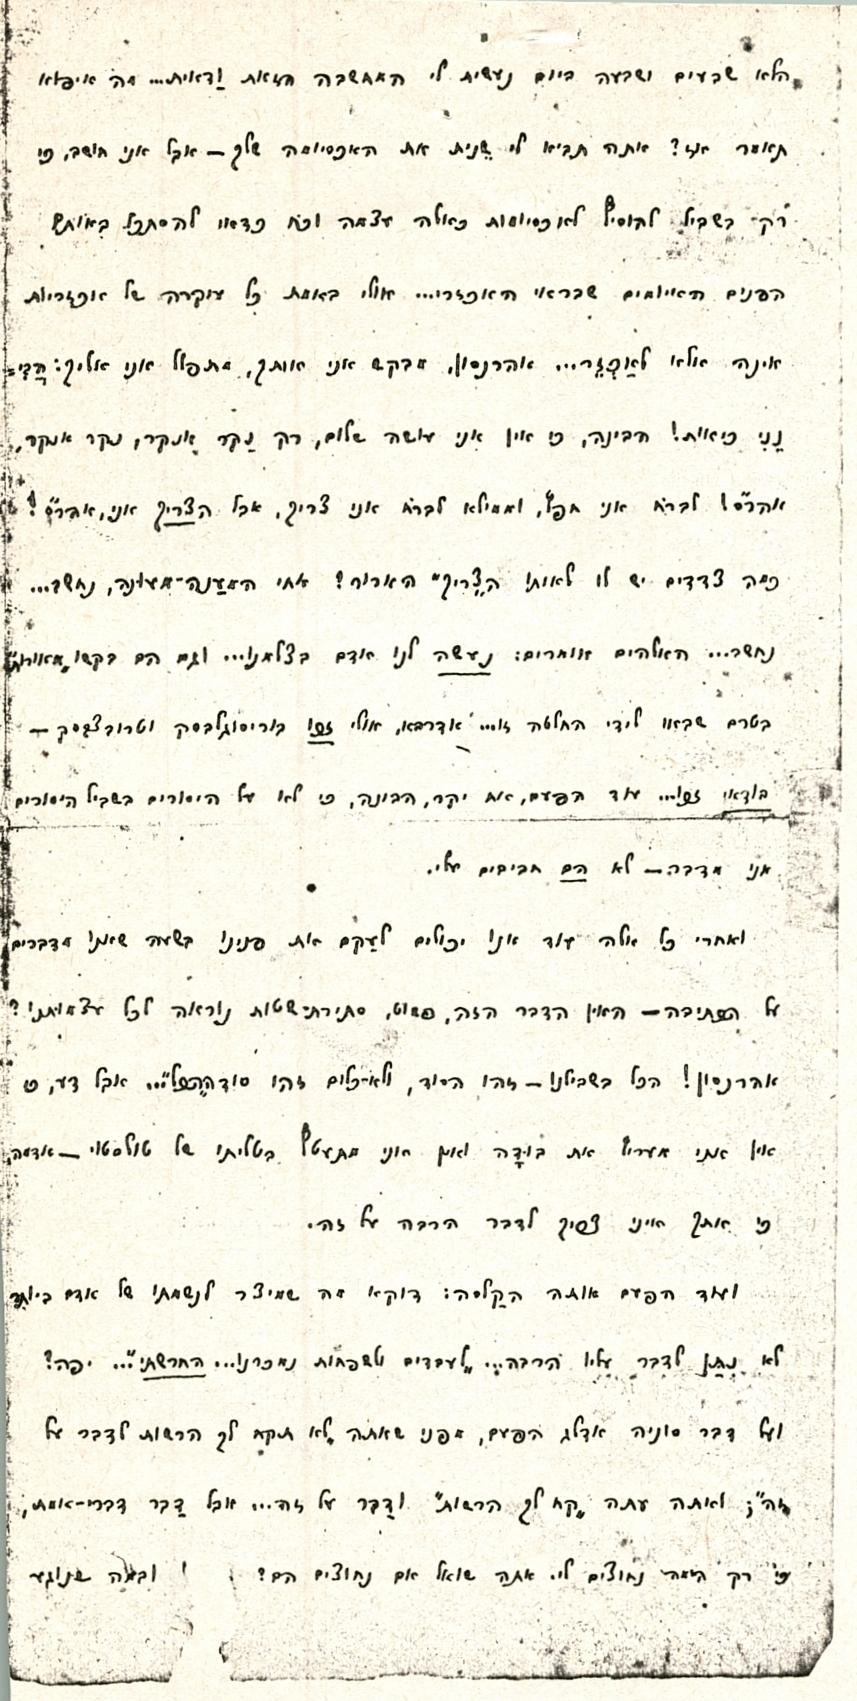 הלא שבעים ושבעה ביום נעשית לי המחשבה הזאת וַדאית... מה איפוא
תאמר אז? אתה תביא לי שֵנית את האכסיומה שלך – אבל אני חושב, כי
רק בשביל להוסיף לאכסיומות כאלה עצמה וכח כדאי להסתכל באותם
הפנים האיומים שבראי האכזרי... אולי באמת כל עיקרה של אכזריות
אינה אלא לְאַכְזָר... אהרנסון, מבקש אני אותך, מתפלל אני אליך: הֲבִי־
נֵנִי כיאות! הבינה, כי אין אני עושה שלום, רק נַקר אֲנקר, נקר אנקר,
אהר״ס! לברח אני חפץ, וממילא לברח אני צריך, אבל הצריך אני, אהר״ס?
כמה צדדים יש לו לאותו ה„צריך״ הארור? אחי המְעַנה־מְעוּנה, נחשב...
נחשב... האלהים אומרים: נעשה לנו אדם בצלמנו... וגם הם בקשו „מאורות״
בטרם שבאו לידי החלטה זו... אדרבא, אולי זהו בוריסוגלבסק וטרובצבסק –
בודאי זהו... עוד הפעם, אח יקר, הבינה, כי לא על היסורים בשביל היסורים
אני מדבר – לא הם חביבים עלי.
ואחרי כל אלה עוד אנו יכולים לְעַקם את פנינו בשעה שאנו מדברים
על הכתיבה – האין הדבר הזה, פשוט, סתירת־שטות נוראה לכל עצמותנו?
אהרנסון! הכל בשבילנו – זהו הסוד, ולא־כלום זהו סוד ה„הכל״... אבל דע, כי
אין אני מעריץ את בוּדָה ואין אני מתעטף בטליתו של טולסטוי – אדמה,
כי אותך איני צריך לדבר הרבה על זה.
ועוד הפעם אותה הקַלסה: דוקא מה שמיצר לנשמתו של אדם ביותר
לא נִתָּן לדבר עליו הרבה... „לעבדים ולשפחות נמכרנו... החרשתי״... יפה?
ועל דבר סוניה אדלג הפעם, מפני שאתה „לא תקח לך הרשות לדבר על
זה״; ולאתה עתה „קח לך הרשות״ ודַבר על זה... אבל דַבר דברי־אמת,
כי רק המה נחוצים לי. אתה שואל אם נחוצים הם? ובמה שנוגע